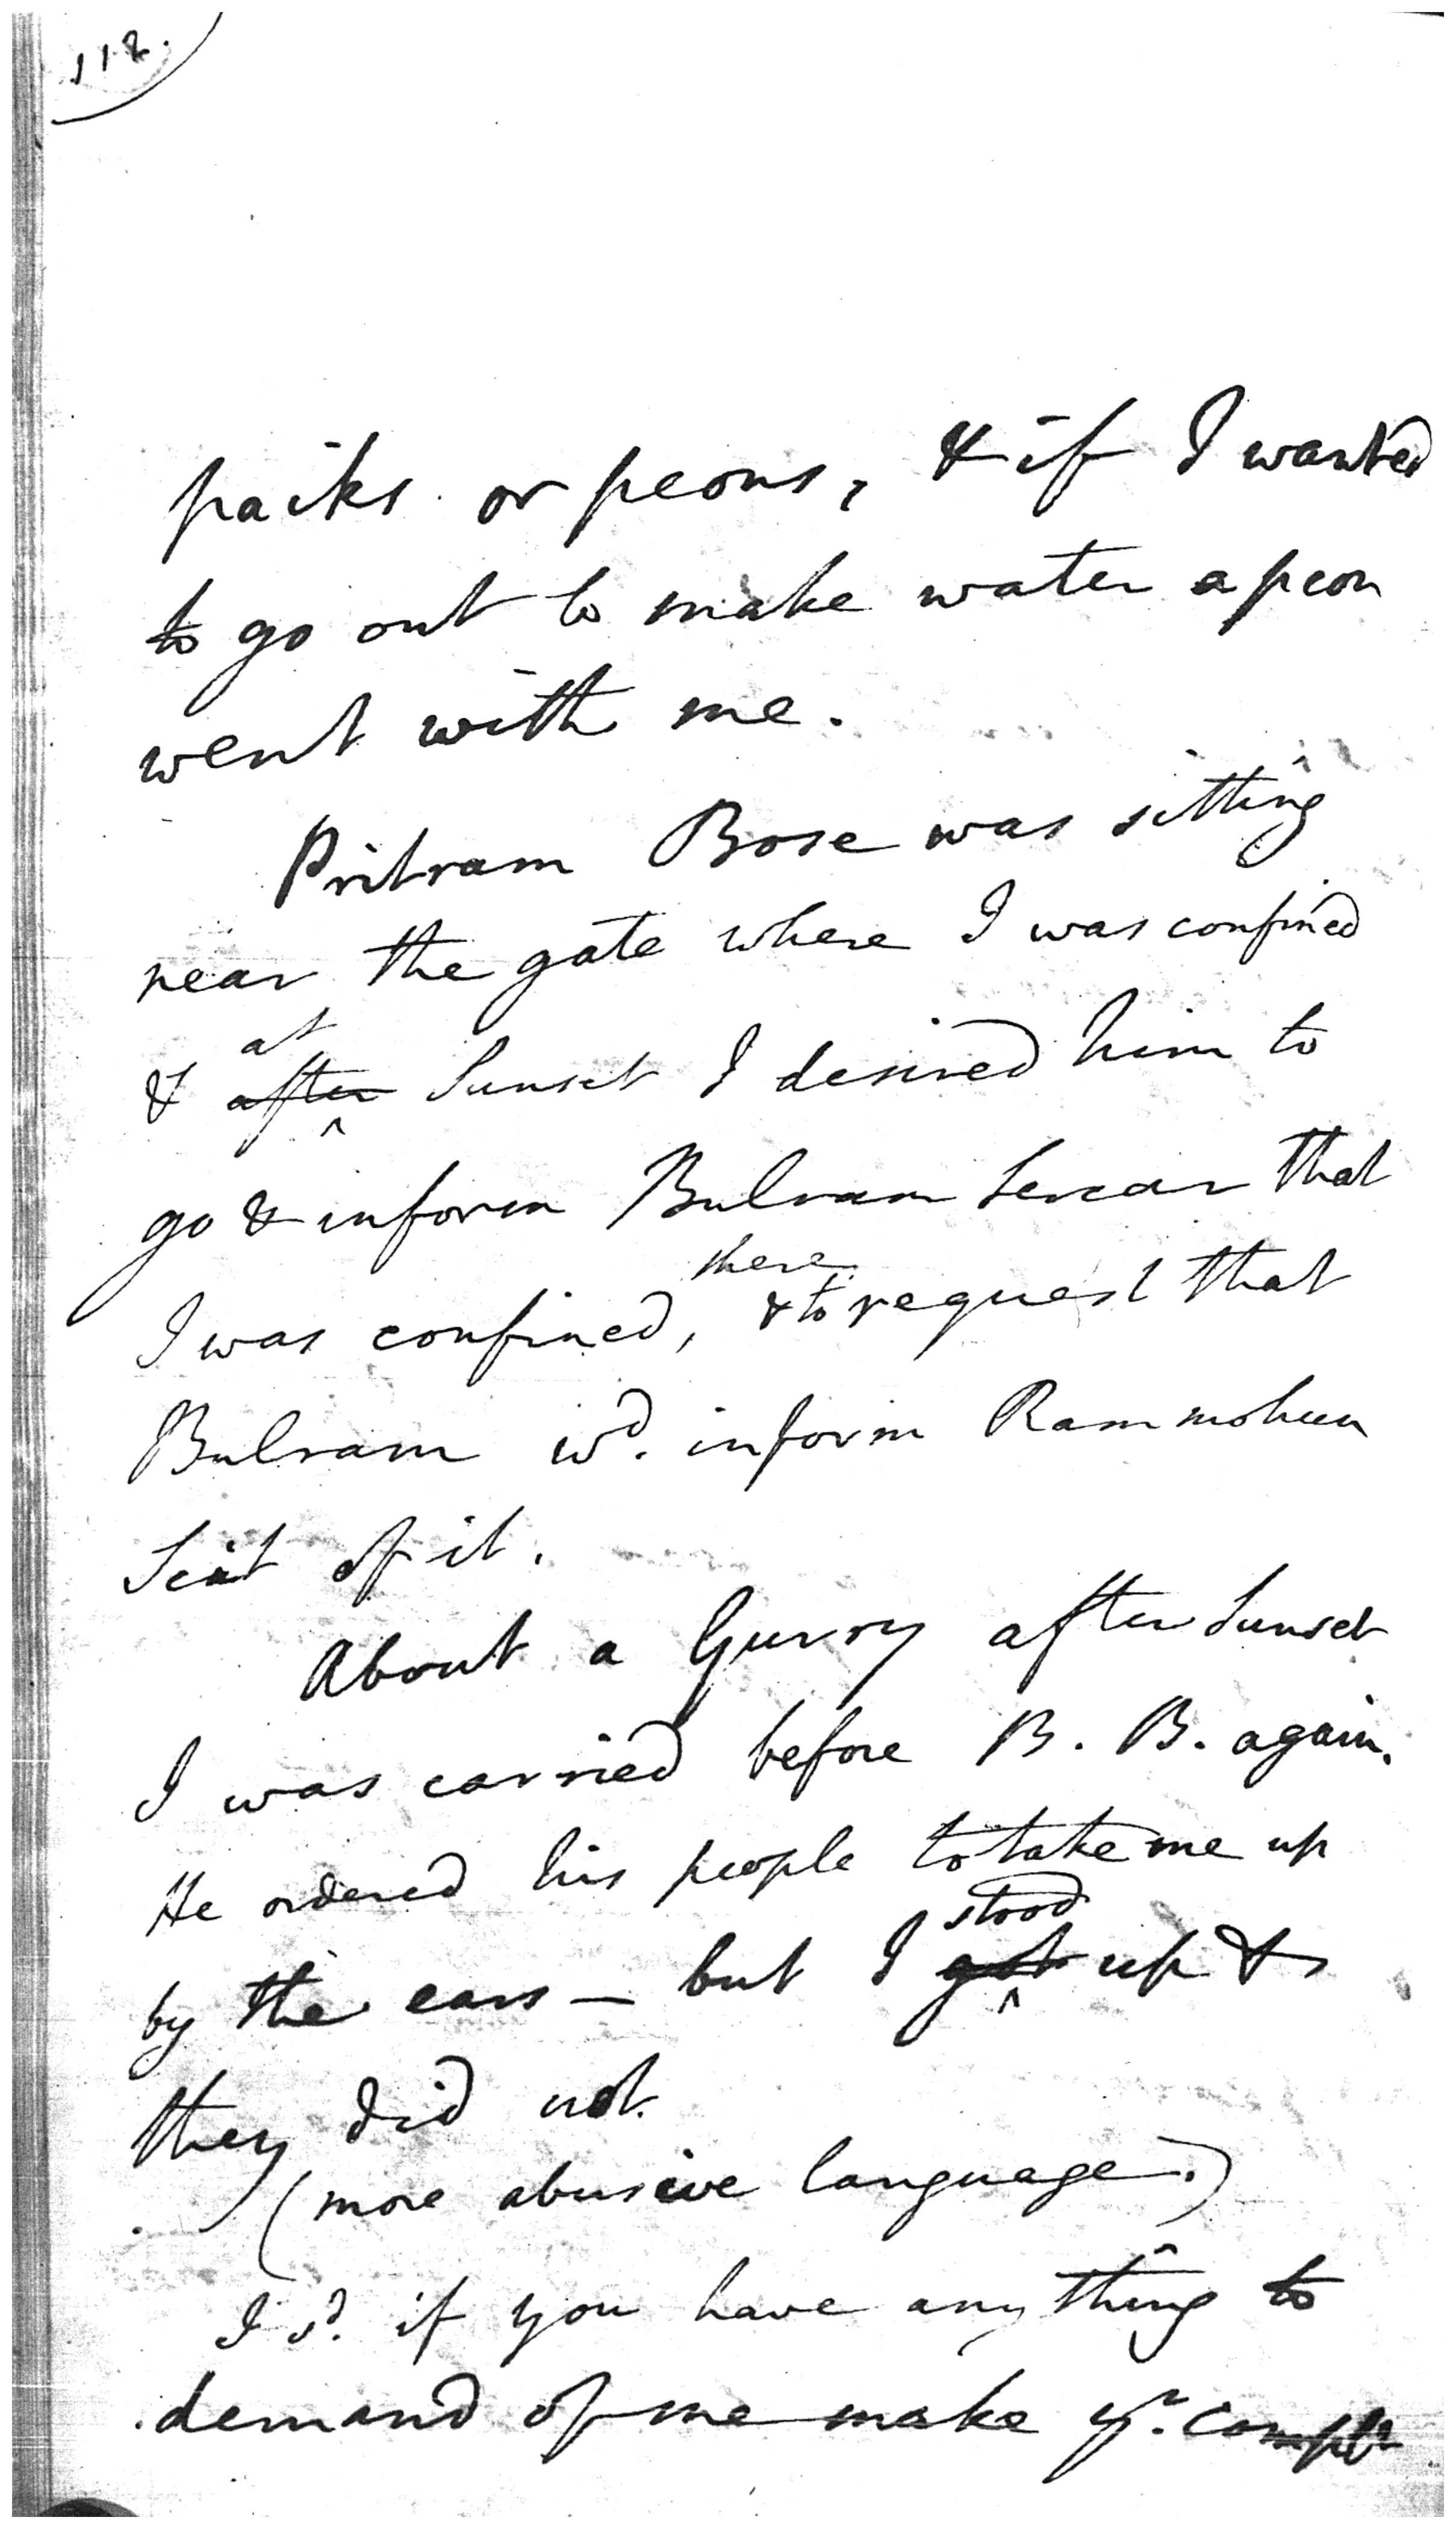 112.
paiks or peons, & if I wanted
to go out to make water a peon
went with me.
Pritram Bose was sitting
near the gate where I was confined
at
& after Sunset I desired him to
go & inform Bulram Sercar that
there
I was confined, & to request that
Bulram wd. inform Rammohun
Seat of it.
About a Gurry after Sunset
I was carried before B. B. again.
He ordered his people to take me up
stood
by the ears — but I got up &
they did not.
(more abusive language.)
I sd. if you have any thing to
demand of me make yr. complt